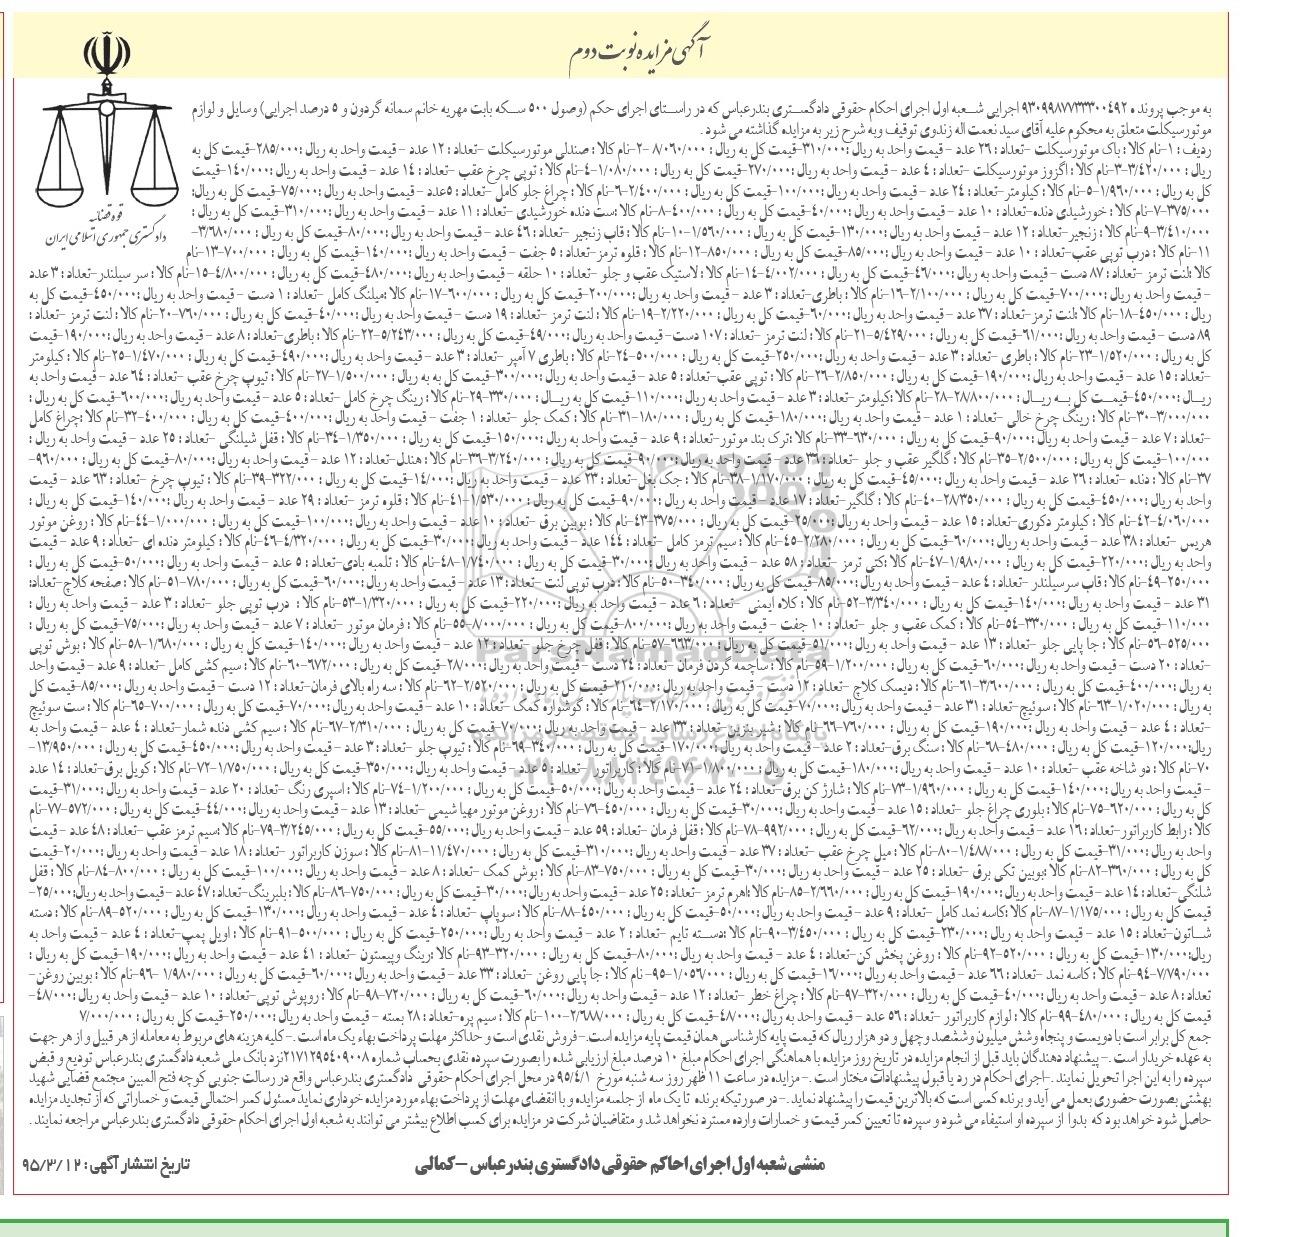 آگهی مزایده نوبت دوم
قوه قضائیه
دادگستری جمهوری اسلامی ایران
به موجب پرونده ۹۳۰۹۹۸۷۷۳۳۳۰۰۴۹۲ اجرایی شعبه اول اجرای احکام حقوقی دادگستری بندرعباس که در راستای اجرای حکم (وصول ۵۰۰ سکه بابت مهریه خانم سمانه گردون و ۵ درصد اجرایی) وسایل و لوازم
موتورسیکلت متعلق به محکوم علیه آقای سید نعمت اله زندوی توقیف وبه شرح زیر به مزایده گذاشته می شود .
ردیف : ۱-نام کالا : باک موتورسیکلت -تعداد : ۲۶ عدد - قیمت واحد به ریال :۳۱۰/۰۰۰-قیمت کل به ریال : ۸/۰۶۰/۰۰۰ -۲-نام کالا : صندلی موتورسیکلت -تعداد : ۱۲ عدد - قیمت واحد به ریال :۲۸۵/۰۰۰-قیمت کل به
ریال : ۳/۴۲۰/۰۰۰-۳-نام کالا : اگزوز موتورسیکلت -تعداد : ۴ عدد - قیمت واحد به ریال :۲۷۰/۰۰۰-قیمت کل به ریال : ۱/۰۸۰/۰۰۰-۴-نام کالا : توپی چرخ عقب -تعداد : ۱۴ عدد - قیمت واحد به ریال :۱۴۰/۰۰۰-قیمت
کل به ریال : ۱/۹۶۰/۰۰۰-۵-نام کالا : کیلومتر-تعداد : ۲۴ عدد - قیمت واحد به ریال :۱۰۰/۰۰۰-قیمت کل به ریال : ۲/۴۰۰/۰۰۰-۶-نام کالا : چراغ جلو کامل -تعداد : ۵عدد - قیمت واحد به ریال :۷۵/۰۰۰-قیمت کل به ریال:
۳۷۵/۰۰۰-۷-نام کالا : خورشیدی دنده-تعداد : ۱۰ عدد - قیمت واحد به ریال :۴۰/۰۰۰-قیمت کل به ریال : ۴۰۰/۰۰۰-۸-نام کالا :ست دنده خورشیدی -تعداد : ۱۱ عدد - قیمت واحد به ریال :۳۱۰/۰۰۰-قیمت کل به ریال :
۳/۴۱۰/۰۰۰-۹-نام کالا : زنجیر-تعداد : ۱۲ عدد - قیمت واحد به ریال :۱۳۰/۰۰۰-قیمت کل به ریال : ۱/۵۶۰/۰۰۰-۱۰-نام کالا : قاب زنجیر -تعداد : ۴۶ عدد - قیمت واحد به ریال :۸۰/۰۰۰-قیمت کل به ریال : ۳/۶۸۰/۰۰۰-
۱۱-نام کالا : درب توپی عقب-تعداد : ۱۰ عدد - قیمت واحد به ریال :۸۵/۰۰۰-قیمت کل به ریال : ۸۵۰/۰۰۰-۱۲-نام کالا : قلوه ترمز-تعداد : ۵ جفت - قیمت واحد به ریال :۱۴۰/۰۰۰-قیمت کل به ریال : ۷۰۰/۰۰۰-۱۳-نام
کالا :لنت ترمز -تعداد : ۸۷ دست - قیمت واحد به ریال :۴۶/۰۰۰-قیمت کل به ریال : ۴/۰۰۲/۰۰۰-۱۴-نام کالا : لاستیک عقب و جلو -تعداد : ۱۰ حلقه - قیمت واحد به ریال :۴۸۰/۰۰۰-قیمت کل به ریال : ۴/۸۰۰/۰۰۰-۱۵-نام کالا : سر سیلندر-تعداد : ۳ عدد
- قیمت واحد به ریال :۷۰۰/۰۰۰-قیمت کل به ریال : ۲/۱۰۰/۰۰۰-۱۶-نام کالا : باطری-تعداد : ۳ عدد - قیمت واحد به ریال :۲۰۰/۰۰۰-قیمت کل به ریال : ۶۰۰/۰۰۰-۱۷-نام کالا :میلنگ کامل -تعداد : ۱ دست - قیمت واحد به ریال :۴۵۰/۰۰۰-قیمت کل به
ریال : ۴۵۰/۰۰۰-۱۸-نام کالا :لنت ترمز-تعداد : ۳۷ عدد - قیمت واحد به ریال :۶۰/۰۰۰-قیمت کل به ریال : ۲/۲۲۰/۰۰۰-۱۹-نام کالا : لنت ترمز -تعداد : ۱۹ دست - قیمت واحد به ریال :۴۰/۰۰۰-قیمت کل به ریال : ۷۶۰/۰۰۰-۲۰-نام کالا : لنت ترمز -تعداد :
۸۹ دست - قیمت واحد به ریال :۶۱/۰۰۰-قیمت کل به ریال : ۵/۴۲۹/۰۰۰-۲۱-نام کالا : لنت ترمز -تعداد : ۱۰۷ دست- قیمت واحد به ریال :۴۹/۰۰۰-قیمت کل به ریال : ۵/۲۴۳/۰۰۰-۲۲-نام کالا : باطری-تعداد : ۸ عدد - قیمت واحد به ریال :۱۹۰/۰۰۰-قیمت
کل به ریال : ۱/۵۲۰/۰۰۰-۲۳-نام کالا : باطری -تعداد : ۳ عدد - قیمت واحد به ریال :۲۵۰/۰۰۰-قیمت کل به ریال : ۵۰۰/۰۰۰-۲۴-نام کالا : باطری ۷ آمپر -تعداد : ۳ عدد - قیمت واحد به ریال :۴۹۰/۰۰۰-قیمت کل به ریال : ۱/۴۷۰/۰۰۰-۲۵-نام کالا : کیلومتر
-تعداد : ۱۵ عدد - قیمت واحد به ریال :۱۹۰/۰۰۰-قیمت کل به ریال : ۲/۸۵۰/۰۰۰-۲۶-نام کالا : توپی عقب-تعداد : ۵ عدد - قیمت واحد به ریال :۳۰۰/۰۰۰-قیمت کل به به ریال : ۱/۵۰۰/۰۰۰-۲۷-نام کالا : تیوپ چرخ عقب -تعداد : ۶۴ عدد - قیمت واحد به
ریال :۴۵۰/۰۰۰-قیمت کل به ریال : ۲۸/۸۰۰/۰۰۰-۲۸-نام کالا :کیلومتر-تعداد : ۳ عدد - قیمت واحد به ریال :۱۱۰/۰۰۰-قیمت کل به ریال : ۳۳۰/۰۰۰-۲۹-نام کالا : رینگ چرخ کامل -تعداد : ۵ عدد - قیمت واحد به ریال :۶۰۰/۰۰۰-قیمت کل به ریال :
۳/۰۰۰/۰۰۰-۳۰-نام کالا : رینگ چرخ خالی -تعداد : ۱ عدد - قیمت واحد به ریال :۱۸۰/۰۰۰-قیمت کل به ریال : ۱۸۰/۰۰۰-۳۱-نام کالا : کمک جلو -تعداد : ۱ جفت - قیمت واحد به ریال :۴۰۰/۰۰۰-قیمت کل به ریال : ۴۰۰/۰۰۰-۳۲-نام کالا :چراغ کامل
-تعداد : ۷ عدد - قیمت واحد به ریال :۹۰/۰۰۰-قیمت کل به ریال : ۶۳۰/۰۰۰-۳۳-نام کالا :ترک بند موتور-تعداد : ۹ عدد - قیمت واحد به ریال :۱۵۰/۰۰۰-قیمت کل به ریال : ۱/۳۵۰/۰۰۰-۳۴-نام کالا : قفل شیلنگی -تعداد : ۲۵ عدد - قیمت واحد به ریال :
۱۰۰/۰۰۰-قیمت کل به ریال : ۲/۵۰۰/۰۰۰-۳۵-نام کالا : گلگیر عقب و جلو -تعداد : ۳۶ عدد - قیمت واحد به ریال :۹۰/۰۰۰-قیمت کل به ریال : ۳/۲۴۰/۰۰۰-۳۶-نام کالا : هندل-تعداد : ۱۲ عدد - قیمت واحد به ریال :۸۰/۰۰۰-قیمت کل به ریال : ۹۶۰/۰۰۰-
۳۷-نام کالا : دنده -تعداد : ۲۶ عدد - قیمت واحد به ریال :۴۵/۰۰۰-قیمت کل به ریال : ۱/۱۷۰/۰۰۰-۳۸-نام کالا : جک بغل-تعداد : ۲۳ عدد - قیمت واحد به ریال :۱۴/۰۰۰-قیمت کل به ریال : ۳۲۲/۰۰۰-۳۹-نام کالا : تیوپ چرخ -تعداد : ۶۳ عدد - قیمت
واحد به ریال :۴۵۰/۰۰۰-قیمت کل به ریال : ۲۸/۳۵۰/۰۰۰-۴۰-نام کالا : گلگیر-تعداد : ۱۷ عدد - قیمت واحد به ریال :۹۰/۰۰۰-قیمت کل به ریال : ۱/۵۳۰/۰۰۰-۴۱-نام کالا : قلوه ترمز -تعداد : ۲۹ عدد - قیمت واحد به ریال :۱۴۰/۰۰۰-قیمت کل به ریال :
۴/۰۶۰/۰۰۰-۴۲-نام کالا : کیلومتر دکوری-تعداد : ۱۵ عدد - قیمت واحد به ریال :۲۵/۰۰۰-قیمت کل به ریال : ۳۷۵/۰۰۰-۴۳-نام کالا : بوبین برق -تعداد : ۱۰ عدد - قیمت واحد به ریال :۱۰۰/۰۰۰-قیمت کل به ریال : ۱/۰۰۰/۰۰۰-۴۴-نام کالا : روغن موتور
هریس -تعداد : ۳۸ عدد - قیمت واحد به ریال :۶۰/۰۰۰-قیمت کل به ریال : ۲/۲۸۰/۰۰۰-۴۵-نام کالا : سیم ترمز کامل -تعداد : ۱۴۴ عدد - قیمت واحد به ریال :۳۰/۰۰۰-قیمت کل به ریال : ۴/۳۲۰/۰۰۰-۴۶-نام کالا : کیلومتر دنده ای -تعداد : ۹ عدد - قیمت
واحد به ریال :۲۲۰/۰۰۰-قیمت کل به ریال : ۱/۹۸۰/۰۰۰-۴۷-نام کالا :کتی ترمز -تعداد : ۵۸ عدد - قیمت واحد به ریال :۳۰/۰۰۰-قیمت کل به ریال : ۱/۷۴۰/۰۰۰-۴۸-نام کالا : تلمبه بادی-تعداد : ۵ عدد - قیمت واحد به ریال :۵۰/۰۰۰-قیمت کل به ریال :
۲۵۰/۰۰۰-۴۹-نام کالا : قاب سرسیلندر -تعداد : ۴ عدد - قیمت واحد به ریال :۸۵/۰۰۰-قیمت کل به ریال : ۳۴۰/۰۰۰-۵۰-نام کالا : درب توپی لنت -تعداد : ۱۳ عدد - قیمت واحد به ریال :۶۰/۰۰۰-قیمت کل به ریال : ۷۸۰/۰۰۰-۵۱-نام کالا : صفحه کلاج-تعداد:
۳۱ عدد - قیمت واحد به ریال :۱۴۰/۰۰۰-قیمت کل به ریال : ۳/۳۴۰/۰۰۰-۵۲-نام کالا : کلاه ایمنی -تعداد : ۶ عدد - قیمت واحد به ریال :۲۲۰/۰۰۰-قیمت کل به ریال : ۱/۳۲۰/۰۰۰-۵۳-نام کالا : درب توپی جلو -تعداد : ۳ عدد - قیمت واحد به ریال :
۱۱۰/۰۰۰-قیمت کل به ریال : ۳۳۰/۰۰۰-۵۴-نام کالا : کمک عقب و جلو -تعداد : ۱۰ جفت - قیمت واحد به ریال :۸۰۰/۰۰۰-قیمت کل به ریال : ۸/۰۰۰/۰۰۰-۵۵-نام کالا : فرمان موتور -تعداد : ۷ عدد - قیمت واحد به ریال :۷۵/۰۰۰-قیمت کل به ریال :
۵۲۵/۰۰۰-۵۶-نام کالا : جا پایی جلو -تعداد : ۱۳ عدد - قیمت واحد به ریال :۵۱/۰۰۰-قیمت کل به ریال : ۶۶۳/۰۰۰-۵۷-نام کالا : قفل چرخ جلو -تعداد : ۱۲ عدد - قیمت واحد به ریال :۱۴۰/۰۰۰-قیمت کل به ریال : ۱/۶۸۰/۰۰۰-۵۸-نام کالا : بوش توپی
-تعداد : ۲۰ دست - قیمت واحد به ریال :۶۰/۰۰۰-قیمت کل به ریال : ۱/۲۰۰/۰۰۰-۵۹-نام کالا : ساچمه گردن فرمان -تعداد : ۲۴ دست - قیمت واحد به ریال :۲۸/۰۰۰-قیمت کل به ریال : ۶۷۲/۰۰۰-۶۰-نام کالا : سیم کشی کامل -تعداد : ۹ عدد - قیمت واحد
به ریال :۴۰۰/۰۰۰-قیمت کل به ریال : ۳/۶۰۰/۰۰۰-۶۱-نام کالا : دیسک کلاج -تعداد : ۱۲ دست - قیمت واحد به ریال :۲۱۰/۰۰۰-قیمت کل به ریال : ۲/۵۲۰/۰۰۰-۶۲-نام کالا : سه راه بالای فرمان-تعداد : ۱۲ دست - قیمت واحد به ریال :۸۵/۰۰۰-قیمت کل
به ریال : ۱/۰۲۰/۰۰۰-۶۳-نام کالا : سوئیچ-تعداد : ۳۱ عدد - قیمت واحد به ریال :۷۰/۰۰۰-قیمت کل به ریال : ۲/۱۷۰/۰۰۰-۶۴-نام کالا : گوشواره کمک -تعداد : ۱۰ عدد - قیمت واحد به ریال :۷۰/۰۰۰-قیمت کل به ریال : ۷۰۰/۰۰۰-۶۵-نام کالا : ست سوئیچ
-تعداد : ۴ عدد - قیمت واحد به ریال :۱۹۰/۰۰۰-قیمت کل به ریال : ۷۶۰/۰۰۰-۶۶-نام کالا : شیر بنزین -تعداد : ۳۳ عدد - قیمت واحد به ریال :۷۰/۰۰۰-قیمت کل به ریال : ۲/۳۱۰/۰۰۰-۶۷-نام کالا : سیم کشی دنده شمار-تعداد : ۴ عدد - قیمت واحد به
ریال :۱۲۰/۰۰۰-قیمت کل به ریال : ۴۸۰/۰۰۰-۶۸-نام کالا : سنگ برق-تعداد : ۲ عدد - قیمت واحد به ریال :۱۷۰/۰۰۰-قیمت کل به ریال : ۳۴۰/۰۰۰-۶۹-نام کالا : تیوپ جلو -تعداد : ۳ عدد - قیمت واحد به ریال :۴۵۰/۰۰۰-قیمت کل به ریال : ۱۳/۹۵۰/۰۰۰-
۷۰-نام کالا : دو شاخه عقب -تعداد : ۱۰ عدد - قیمت واحد به ریال :۱۸۰/۰۰۰-قیمت کل به ریال : ۱/۸۰۰/۰۰۰-۷۱-نام کالا : کاربراتور -تعداد : ۵ عدد - قیمت واحد به ریال :۳۵۰/۰۰۰-قیمت کل به ریال : ۱/۷۵۰/۰۰۰-۷۲-نام کالا : کویل برق-تعداد : ۱۴ عدد
- قیمت واحد به ریال :۱۴۰/۰۰۰-قیمت کل به ریال : ۱/۹۶۰/۰۰۰-۷۳-نام کالا : شارژ کن برق-تعداد : ۲۴ عدد - قیمت واحد به ریال :۵۰/۰۰۰-قیمت کل به ریال : ۱/۲۰۰/۰۰۰-۷۴-نام کالا : اسپری رنگ -تعداد : ۲۰ عدد - قیمت واحد به ریال :۳۱/۰۰۰-قیمت
کل به ریال : ۶۲۰/۰۰۰-۷۵-نام کالا : بلوری چراغ جلو -تعداد : ۱۵ عدد - قیمت واحد به ریال :۳۰/۰۰۰-قیمت کل به ریال : ۴۵۰/۰۰۰-۷۶-نام کالا : روغن موتور مهیا شیمی -تعداد : ۱۳ عدد - قیمت واحد به ریال :۴۴/۰۰۰-قیمت کل به ریال : ۵۷۲/۰۰۰-۷۷-نام
کالا : رابط کاربراتور-تعداد : ۱۶ عدد - قیمت واحد به ریال :۶۲/۰۰۰-قیمت کل به ریال : ۹۹۲/۰۰۰-۷۸-نام کالا : قفل فرمان -تعداد : ۵۹ عدد - قیمت واحد به ریال :۵۵/۰۰۰-قیمت کل به ریال : ۳/۲۴۵/۰۰۰-۷۹-نام کالا :سیم ترمز عقب -تعداد : ۴۸ عدد - قیمت
واحد به ریال :۳۱/۰۰۰-قیمت کل به ریال : ۱/۴۸۸/۰۰۰-۸۰-نام کالا : میل چرخ عقب -تعداد : ۳۷ عدد - قیمت واحد به ریال :۳۱۰/۰۰۰-قیمت کل به ریال : ۱۱/۴۷۰/۰۰۰-۸۱-نام کالا : سوزن کاربراتور -تعداد : ۱۸ عدد - قیمت واحد به ریال :۲۰/۰۰۰-قیمت
کل به ریال : ۳۶۰/۰۰۰-۸۲-نام کالا :بوبین تکی برق -تعداد : ۲۵ عدد - قیمت واحد به ریال :۳۰/۰۰۰-قیمت کل به ریال : ۷۵۰/۰۰۰-۸۳-نام کالا : بوش کمک -تعداد : ۸ عدد - قیمت واحد به ریال :۱۰۰/۰۰۰-قیمت کل به ریال : ۸۰۰/۰۰۰-۸۴-نام کالا : قفل
شلنگی-تعداد : ۱۴ عدد - قیمت واحد به ریال :۱۹۰/۰۰۰-قیمت کل به ریال : ۲/۶۶۰/۰۰۰-۸۵-نام کالا :اهرم ترمز -تعداد : ۲۵ عدد - قیمت واحد به ریال :۳۰/۰۰۰-قیمت کل به ریال : ۷۵۰/۰۰۰-۸۶-نام کالا : بلبرینگ-تعداد : ۴۷ عدد - قیمت واحد به ریال:۲۵/۰۰۰-
قیمت کل به ریال : ۱/۱۷۵/۰۰۰-۸۷-نام کالا :کاسه نمد کامل -تعداد : ۹ عدد - قیمت واحد به ریال :۵۰/۰۰۰-قیمت کل به ریال : ۴۵۰/۰۰۰-۸۸-نام کالا : سوپاپ -تعداد : ۴ عدد - قیمت واحد به ریال :۱۳۰/۰۰۰-قیمت کل به ریال : ۵۲۰/۰۰۰-۸۹-نام کالا : دسته
شاتون-تعداد : ۱۵ عدد - قیمت واحد به ریال :۲۳۰/۰۰۰-قیمت کل به ریال : ۳/۴۵۰/۰۰۰-۹۰-نام کالا :دسته تایم -تعداد : ۲ عدد - قیمت واحد به ریال :۲۵۰/۰۰۰-قیمت کل به ریال : ۵۰۰/۰۰۰-۹۱-نام کالا : اویل پمپ-تعداد : ۴ عدد - قیمت واحد به
ریال :۱۳۰/۰۰۰-قیمت کل به ریال : ۵۲۰/۰۰۰-۹۲-نام کالا : روغن پخش کن-تعداد : ۴ عدد - قیمت واحد به ریال :۸۰/۰۰۰-قیمت کل به ریال : ۳۲۰/۰۰۰-۹۳-نام کالا :رینگ وپیستون -تعداد : ۴۱ عدد - قیمت واحد به ریال :۱۹۰/۰۰۰-قیمت کل به ریال :
۷/۷۹۰/۰۰۰-۹۴-نام کالا : کاسه نمد -تعداد : ۶۶ عدد - قیمت واحد به ریال :۱۶/۰۰۰-قیمت کل به ریال : ۱/۰۵۶/۰۰۰-۹۵-نام کالا : جا پایی روغن -تعداد : ۳۳ عدد - قیمت واحد به ریال :۶۰/۰۰۰-قیمت کل به ریال : ۱/۹۸۰/۰۰۰-۹۶-نام کالا : بوبین روغن-
تعداد : ۸ عدد - قیمت واحد به ریال :۴۰/۰۰۰-قیمت کل به ریال : ۳۲۰/۰۰۰-۹۷-نام کالا : چراغ خطر -تعداد : ۱۲ عدد - قیمت واحد به ریال :۶۰/۰۰۰-قیمت کل به ریال : ۷۲۰/۰۰۰-۹۸-نام کالا : روپوش توپی-تعداد : ۱۰ عدد - قیمت واحد به ریال :۴۸/۰۰۰-
قیمت کل به ریال : ۴۸۰/۰۰۰-۹۹-نام کالا : لوازم کاربراتور -تعداد : ۵۶ عدد - قیمت واحد به ریال :۴۸/۰۰۰-قیمت کل به ریال : ۲/۶۸۸/۰۰۰-۱۰۰-نام کالا : سیم پره-تعداد : ۲۸ بسته - قیمت واحد به ریال :۲۵۰/۰۰۰-قیمت کل به ریال : ۷/۰۰۰/۰۰۰
جمع کل برابر است با دویست و پنجاه وشش میلیون وششصد وچهل و دو هزار ریال که قیمت پایه کارشناسی همان قیمت پایه مزایده است.-فروش نقدی است و حداکثر مهلت پرداخت بهاء یک ماه است .-کلیه هزینه های مربوط به معامله از هر قبیل و از هر جهت
به عهده خریدار است .-پیشنهاد دهندگان باید قبل از انجام مزایده در تاریخ روز مزایده با هماهنگی اجرای احکام مبلغ ۱۰ درصد مبلغ ارزیابی شده را بصورت سپرده نقدی بحساب شماره ۲۱۷۱۲۹۵۴۰۹۰۰۸نزد بانک ملی شعبه دادگستری بندرعباس تودیع و قبض
سپرده را به این اجرا تحویل نمایند .-اجرای احکام در رد یا قبول پیشنهادات مختار است .-مزایده در ساعت ۱۱ ظهر روز سه شنبه مورخ ۹۵/۴/۱ در محل اجرای احکام حقوقی دادگستری بندرعباس واقع در رسالت جنوبی کوچه فتح المبین مجتمع قضایی شهید
بهشتی بصورت حضوری بعمل می آید و برنده کسی است که بالاترین قیمت را پیشنهاد نماید .-در صورتیکه برنده تا یک ماه از جلسه مزایده و با انقضای مهلت از پرداخت بهاء مورد مزایده خوداری نماید مسئول کسر احتمالی قیمت و خساراتی که از تجدید مزایده
حاصل شود خواهد بود که بدوا از سپرده او استیفاء می شود و سپرده تا تعیین کسر قیمت و خسارات وارده مسترد نخواهد شد و متقاضیان شرکت در مزایده برای کسب اطلاع بیشتر می توانند به شعبه اول اجرای احکام حقوقی دادگستری بندرعباس مراجعه نمایند .
منشی شعبه اول اجرای احاکم حقوقی دادگستری بندرعباس -کمالی
تاریخ انتشار آگهی : ۹۵/۳/۱۲